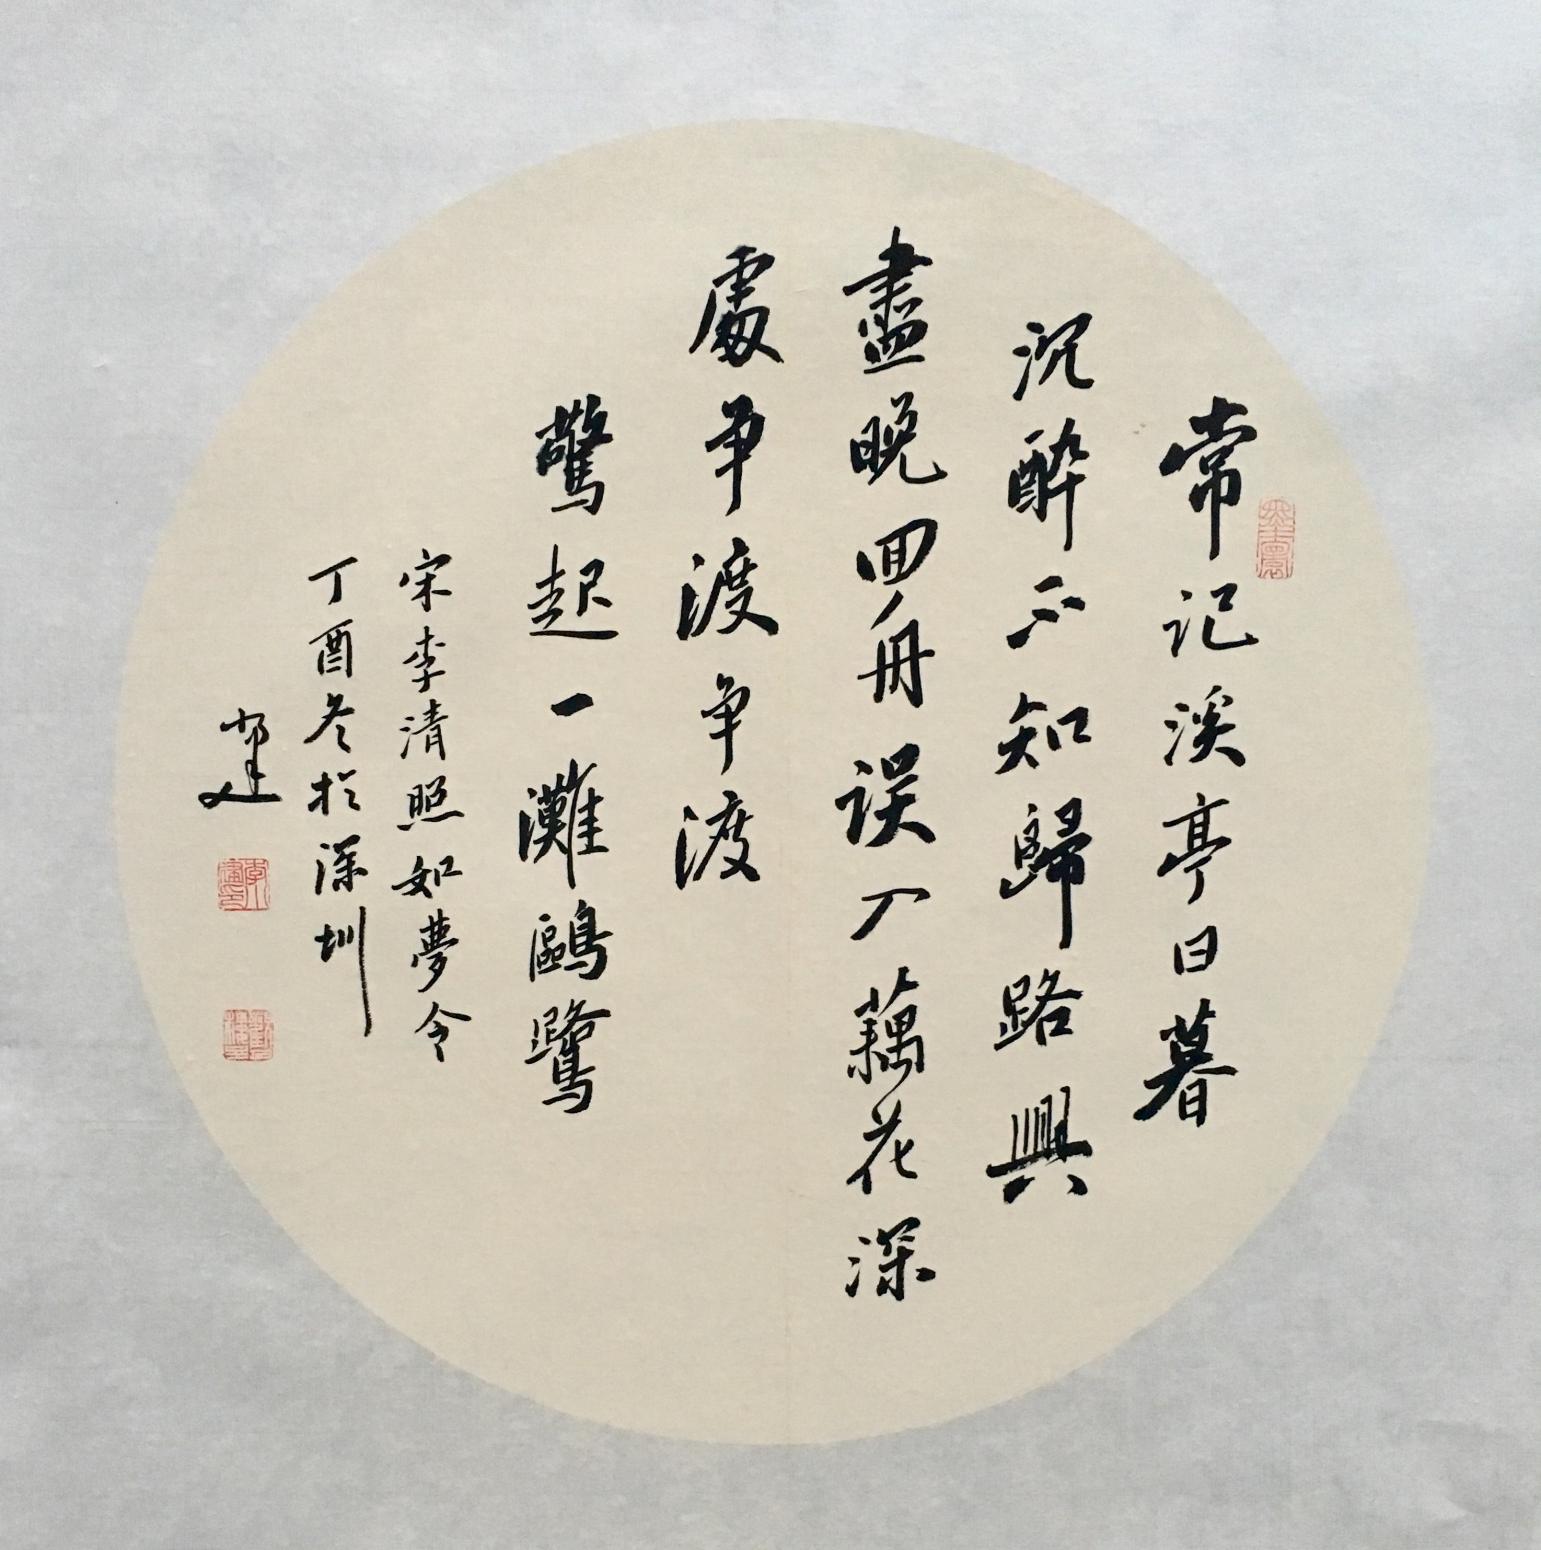 常记溪亭日暮
沉醉不知歸路興
盡晚回舟误入藕花深
處争渡争渡
驚起一灘鷗鷺
宋李清照如夢令
丁酉冬於深圳